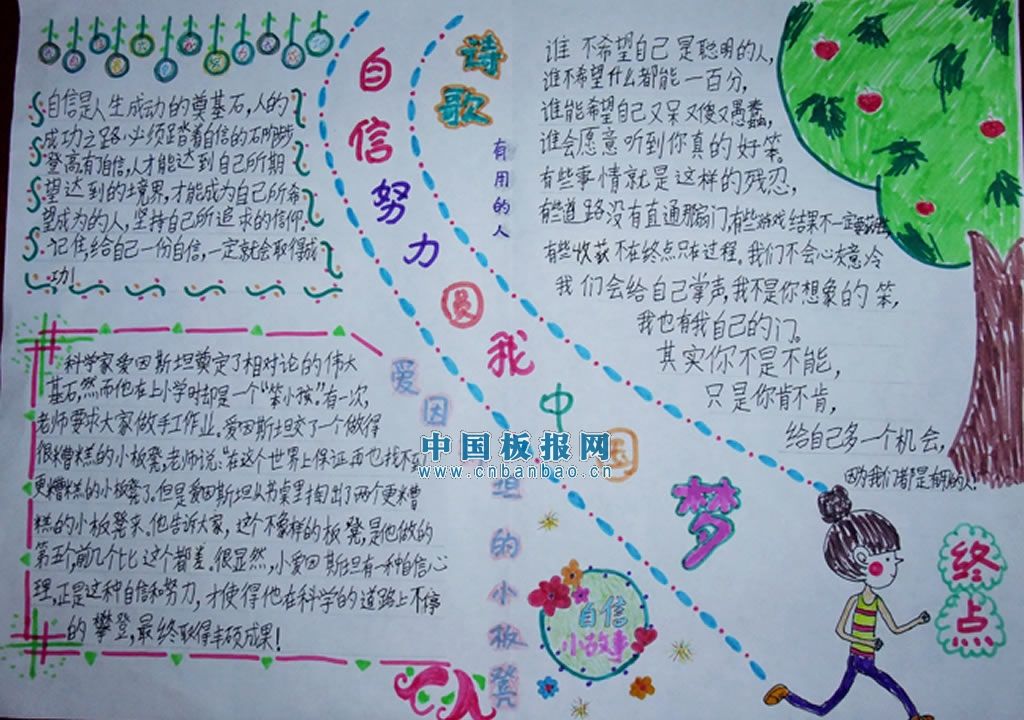 自信是人生成功的奠基石,人的
成功之路,必须踏着自信的石阶步步
登高有了自信,人才能达到自己所期
望达到的境界,才能成为自己所希
望成为的人,坚持自己所追求的信仰。
记住,给自己一份自信,一定就会取得成
功!
自信努力圆我中国梦
诗歌
有用的人
谁不希望自己是聪明的人,
谁不希望什么都能一百分,
谁能希望自己又呆又傻又愚蠢,
谁会愿意听到你真的好笨。
有些事情就是这样的残忍,
有些道路没有直通那扇门,有些游戏结果不一定
有些收获不在终点只在过程。我们不会心灰意冷
我们会给自己掌声,我不是你想象的笨,
我也有我自己的门。
其实你不是不能,
只是你肯不肯,
给自己多一个机会,
因为我们都是有用的人!
科学家爱因斯坦奠定了相对论的伟大
基石,然而他在上小学时却是一个“笨小孩”。有一次,
老师要求大家做手工作业。爱因斯坦交了一个做得
很糟糕的小板凳,老师说:“在这个世界上保证再也找不到
更糟糕的小板凳了,但是爱因斯坦从书桌里掏出了两个更糟
糕的小板凳来。他告诉大家,这个不像样的板凳,是他做的
第五个,前几个比这个都差。很显然,小爱因斯坦有一种自信心
理,正是这种自信和努力,才使得他在科学的道路上不停
的攀登,最终取得丰硕成果!
爱因坦的小板凳
中国板报网
www.cnbanbao.cn
自信
小故事
终点